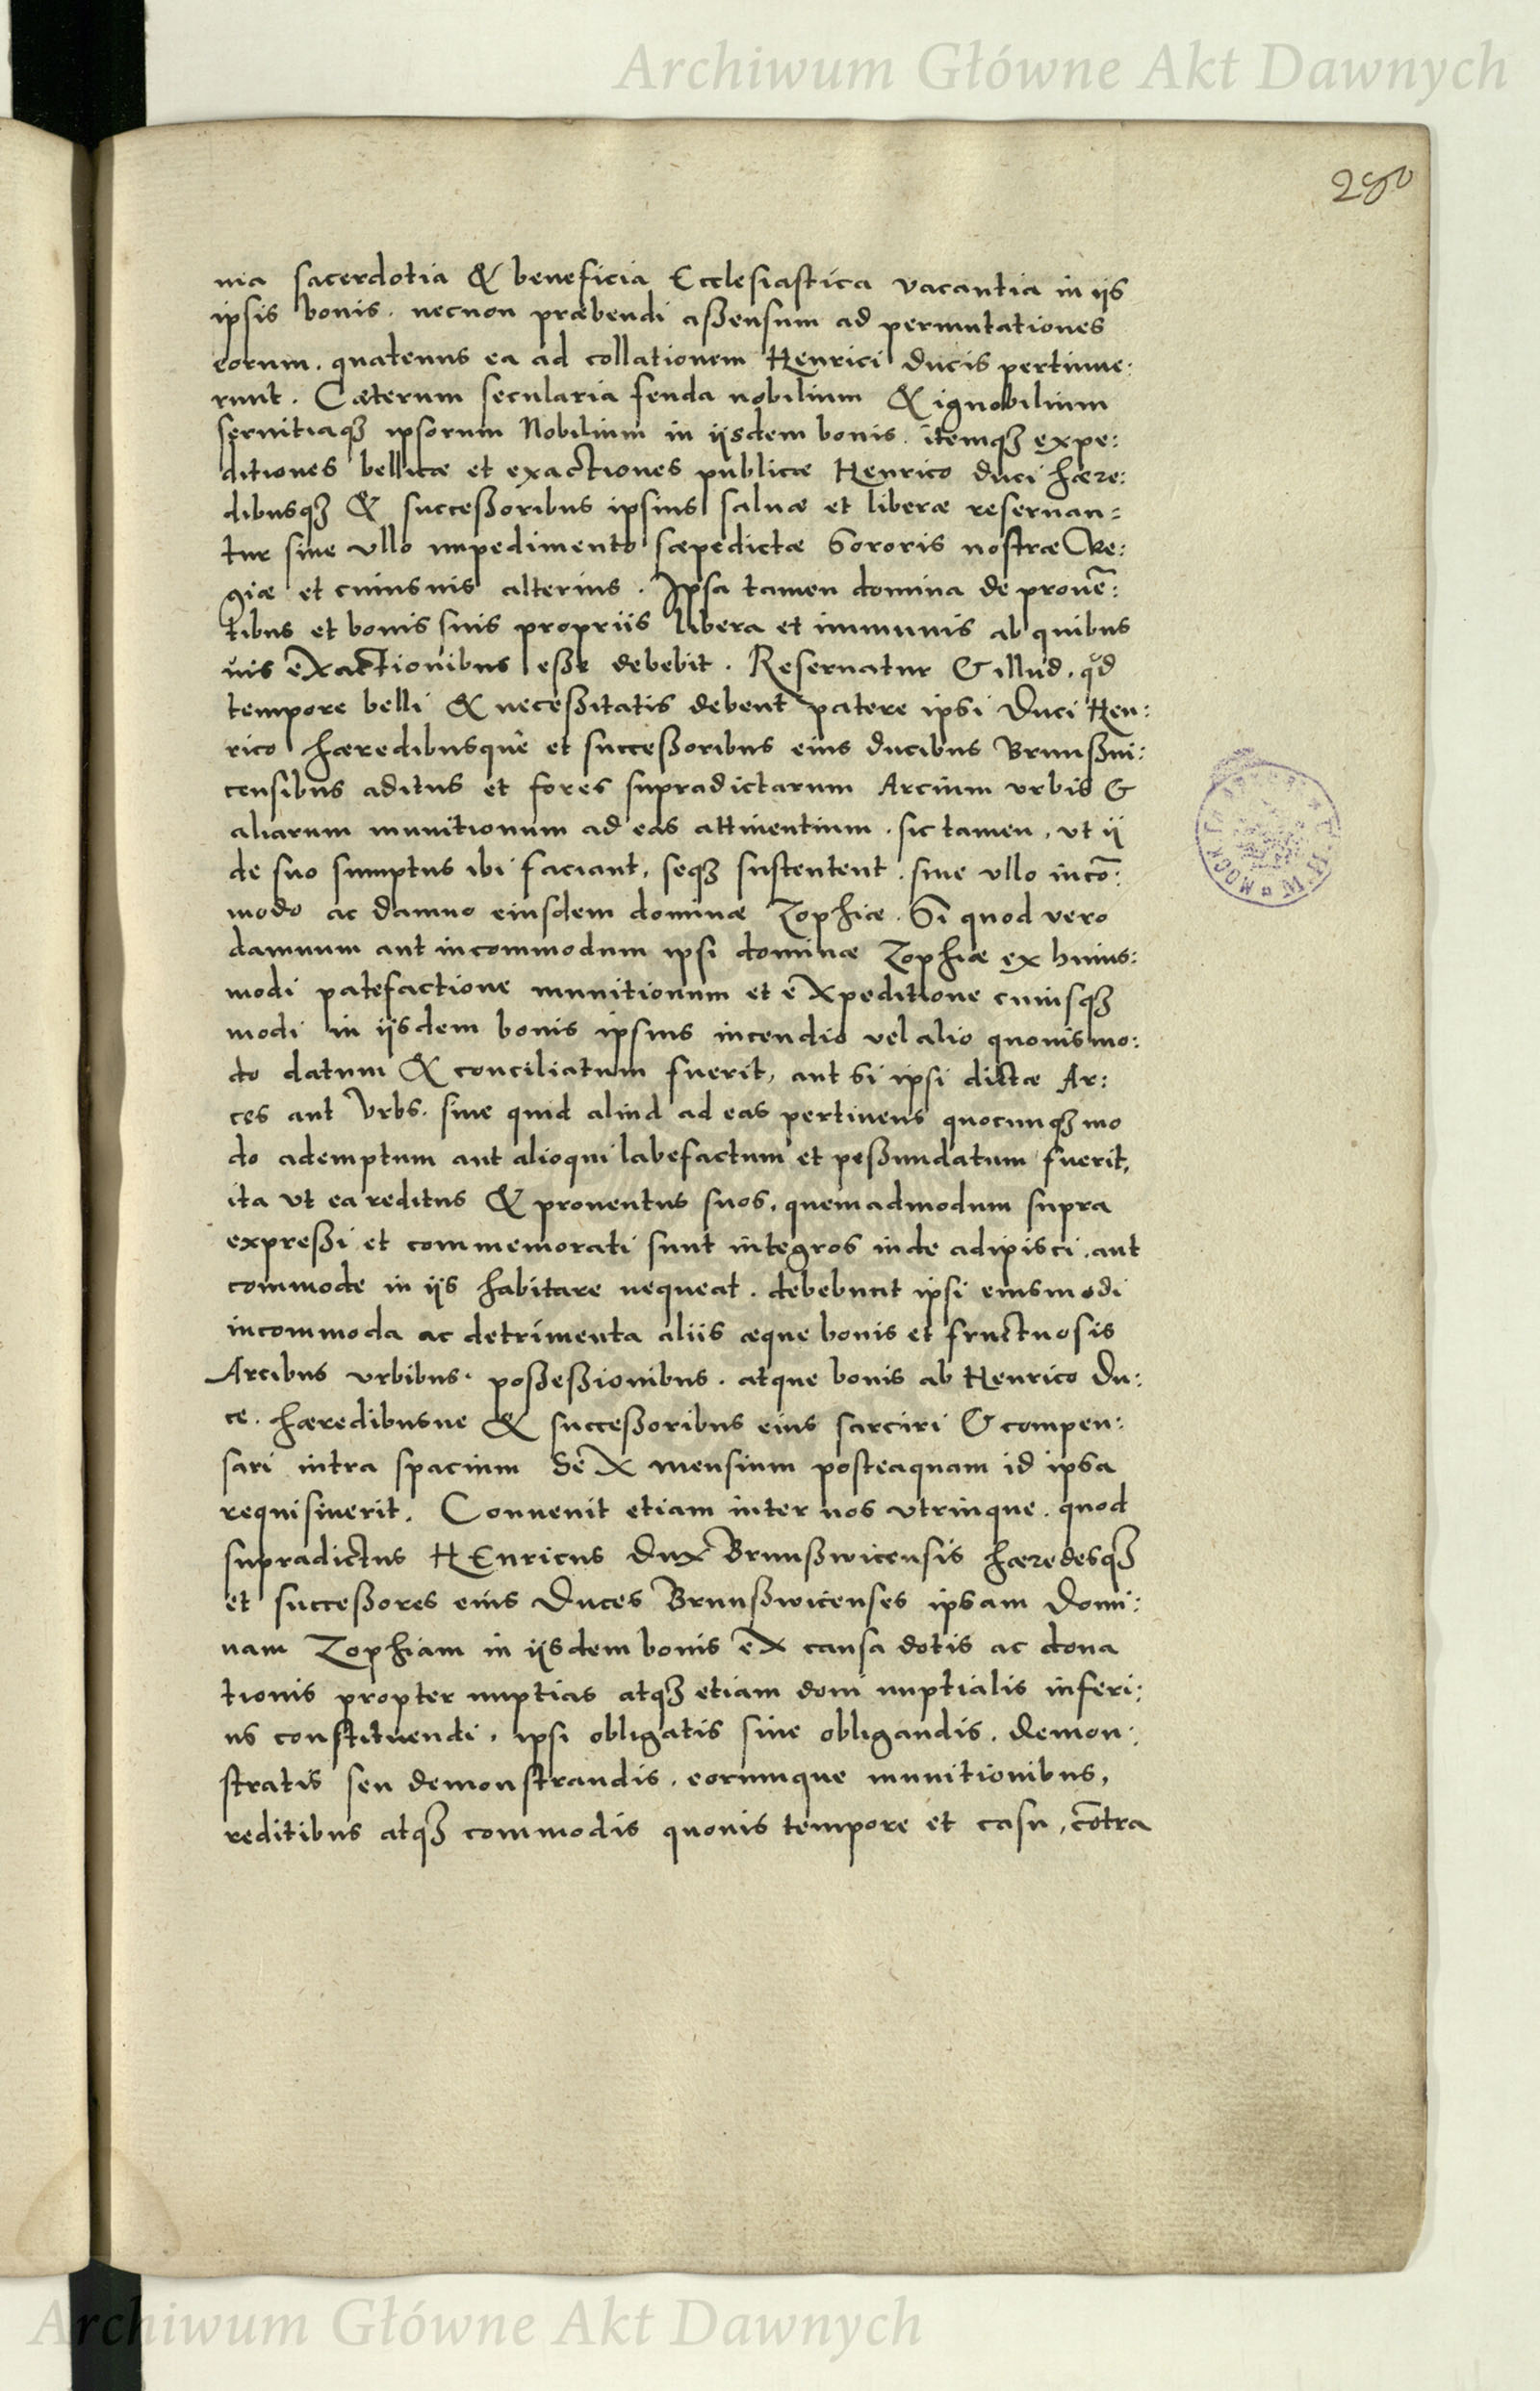 Archiwum Główne Akt Dawnych
280
nia sacerdotia & beneficia Ecclesiastica vacantia in iis
ipsis bonis. necnon præbendi aßensum ad permutationes
eorum. quatenus ea ad collationem Henrici ducis pertinue:
runt. Cæterum secularia feuda nobilium & ignobilium
seruitiaqꝫ ipsorum Nobilium in iisdem bonis. itemqꝫ expe:
ditiones bellicæ et exactiones publicæ Henrico duci hære:
dibusqꝫ & succeßoribus ipsius saluæ et liberæ reseruan=
tur siue vllo impedimento sæpedictæ Sororis nostræ Re:
giæ et cuiusuis alterius. Ipsa tamen domina de prouē:
tibus et bonis suis propriis libera et immunis ab quibus
uis eXactionibus eße debebit. Reseruatur & illud. qd
tempore belli & neceßitatis debent patere ipsi Duci Hen:
rico hæredibusque et succeßoribus eius ducibus Brunßui:
censibus aditus et fores supradictarum Arcium vrbis &
aliarum munitionum ad eas attinentium. sic tamen, vt ii
de suo sumptus ibi faciant, seqꝫ sustentent. sine vllo incō:
modo ac damno eiusdem dominæ Zophiæ. Si quod vero
damnum aut incommodum ipsi dominæ Zophiæ ex huius:
modi patefactione munitionum et eXpeditione cuiusqꝫ
modi in iisdem bonis ipsius incendio vel alio quouis mo:
do datum & conciliatum fuerit, aut si ipsi dictæ Ar:
ces aut Vrbs. siue quid aliud ad eas pertinens quocunqꝫ mo
do ademptum aut alioqui labefactum et peßundatum fuerit,
ita vt ea reditus & prouentus suos, quemadmodum supra
expreßi et commemorati sunt integros inde adipisci. aut
commode in iis habitare nequeat. debebunt ipsi eiusmodi
incommoda ac detrimenta aliis æque bonis et fructuosis
Arcibus vrbibus. poßeßionibus. atque bonis ab Henrico Du:
ce. hæredibusue & succeßoribus eius sarciri & compen:
sari intra spacium SeX mensium posteaquam id ipsa
requisiuerit. Conuenit etiam inter nos vtrinque. quod
supradictus HEnricus Dux Brunßwicensis hæredesqꝫ
et succeßores eius Duces Brunßwicenses ipsam Domi:
nam Zophiam in iisdem bonis eX causa dotis ac dona
tionis propter nuptias atqꝫ etiam doni nuptialis inferi:
us constituendi, ipsi obligatis siue obligandis. demon:
stratis seu demonstrandis. eorumque munitionibus,
reditibus atqꝫ commodis quouis tempore et casu, cōtra
Archiwum Główne Akt Dawnych